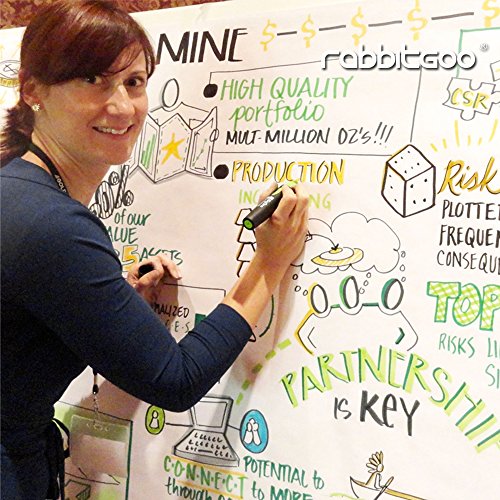 MINE $ $ $ $ $ $
rabbitgoo®
HIGH QUALITY
portfolio
MULT-MILLION OZ'S!!!
CSR
PRODUCTION
Risk
PLOTTE
FREQUEN
CONSEQU
of our
VALUE
5 ASSETS
TOP
RISKS
PARTNERSHIP
IS KEY
C·O·N·N·E·C·T
POTENTIAL to
through
to MORE